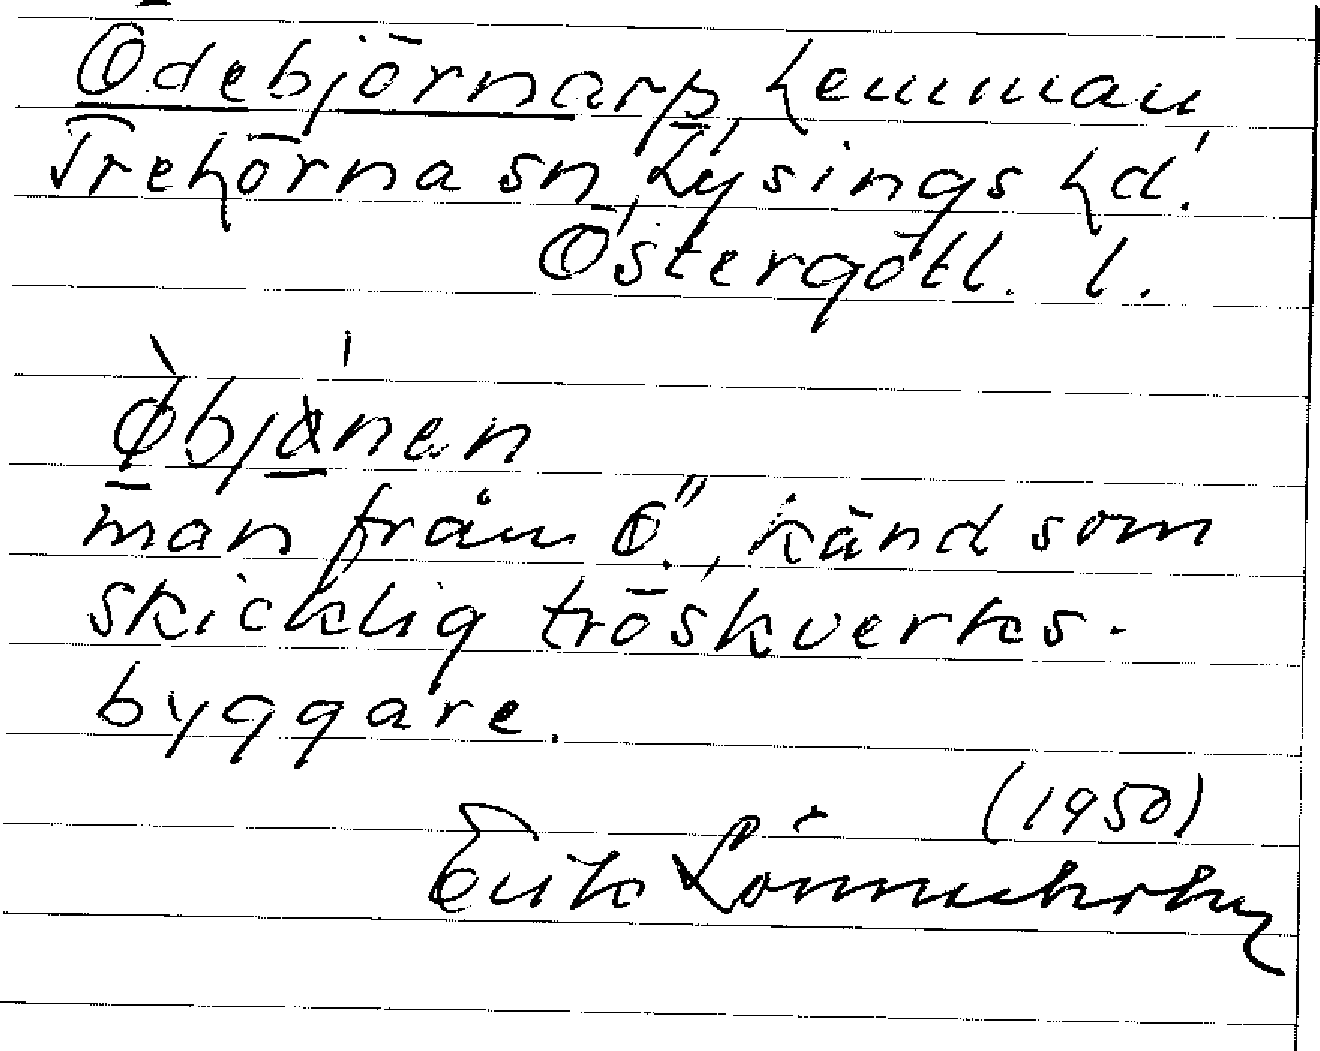 Ödebjörnarp, hemman
Trehörna sn, Lysings hd.
Östergötl. l.
man från Ö., känd som
skicklig tröskverks-
byggare.
(1950)
Erik